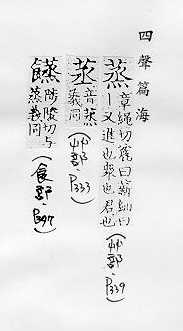 四聲篇海
蒸 章繩切麄曰薪細曰
｜又進也衆也君也(艸部·P339)
蒸 音蒸
義同(艸部·P333)
䭘 陟陵切与
蒸義同(食部·P397)